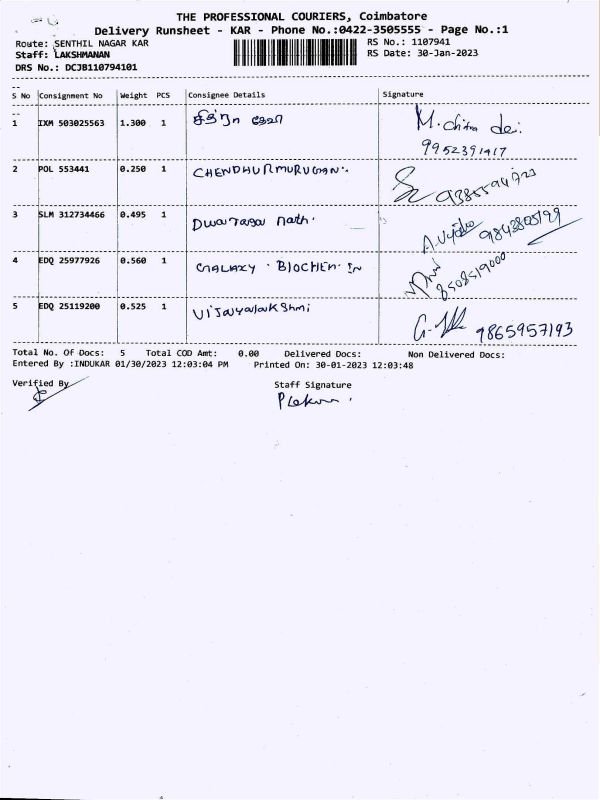 THE PROFESSIONAL COURIERS, Coimbatore
Delivery Runsheet - KAR - Phone No.:0422-3505555 - Page No.:1
Route: SENTHIL NAGAR KAR RS No.: 1107941
Staff: LAKSHMANAN RS Date: 30-Jan-2023
DRS No.: DCJB110794101
S No Consignment No Weight PCS Consignee Details Signature
1 IXM 503025563 1.300 1 சித்ரா தேவி M. chitra dei
9952391417
2 POL 553441 0.250 1 CHENDHURMURUGAN. 9385594723
3 SLM 312734466 0.495 1 Dwaraga nath. 9843805199
4 EDQ 25977926 0.560 1 GALAXY BIOCHEM IN 8508519000
5 EDQ 25119200 0.525 1 Vijayalakshmi 9865957193
Total No. Of Docs: 5 Total COD Amt: 0.00 Delivered Docs: Non Delivered Docs:
Entered By :INDUKAR 01/30/2023 12:03:04 PM Printed On: 30-01-2023 12:03:48
Verified By Staff Signature